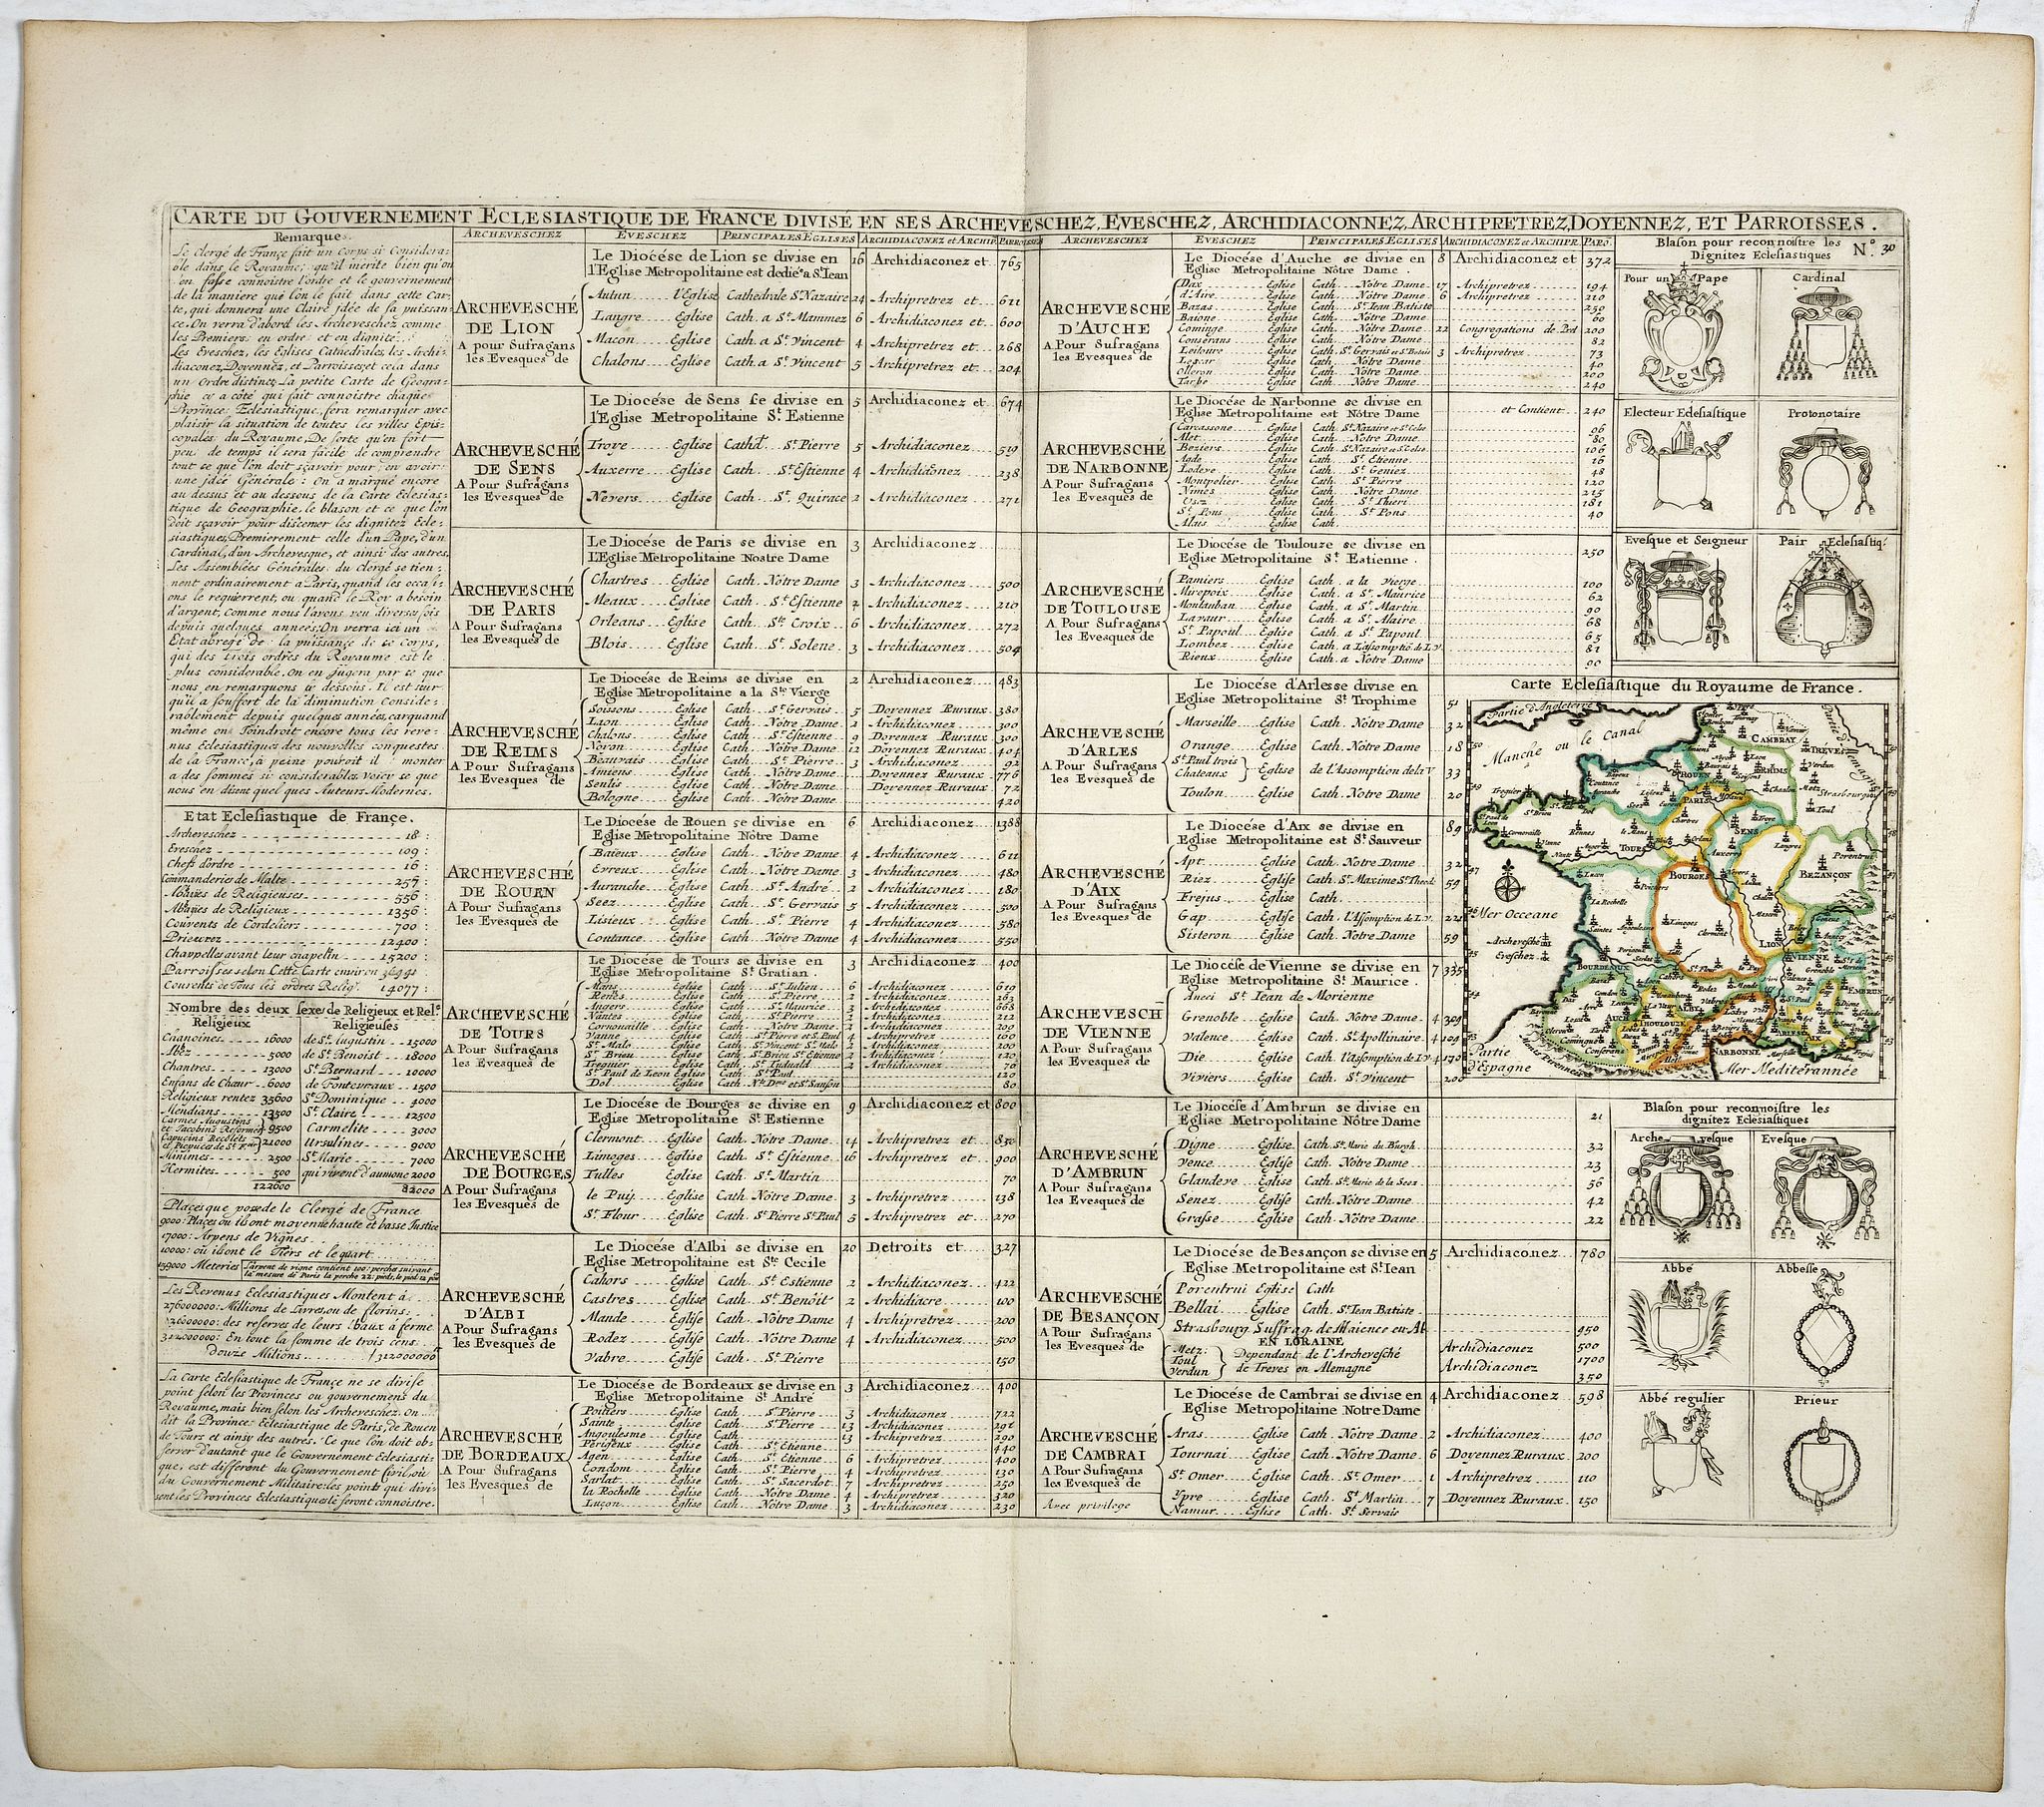 CARTE DU GOUVERNEMENT ECLESIASTIQUE DE FRANCE DIVISÉ EN SES ARCHEVESCHEZ, EVESCHEZ, ARCHIDIACONNEZ, ARCHIPRETREZ, DOYENNEZ, ET PARROISSES.
Remarque.
Le Clergé de France fait un Corps si Considera:
ble dans le Royaume; qu'il mérite bien qu'on
en fasse connoistre l'ordre et le gouvernement
de la maniere que l'on le fait dans cette Car:
te, qui donnera une Claire Idée de sa puissan:
ce. On verra d'abord les Archeveschez comme
les Premiers en ordre et en dignité.
Les Eveschez, les Eglises Cathedrales, les Archi:
diaconez, Doyennez, et Parroisses, et cela dans
un Ordre distinct, La petite Carte de Geogra:
phie ce a côté qui fait connoistre chaque
Province Eclesiastique, fera remarquer avec
plaisir la situation de toutes les villes Epis:
copales du Royaume, De sorte qu'en fort
peu de temps il sera facile de comprendre
tout ce que l'on doit sçavoir pour en avoir
une jdeé Générale: On a marqué encore
au dessus et au dessous de la Carte Eclesias:
tique de Geographie, le blason et ce que l'on
doit sçavoir pour discerner les dignitez Ecle:
siastiques, Premierement celle d'un Pape, d'un
Cardinal, d'un Archevesque, et ainsi des autres.
Les Assemblées Générales du Clergé se tien:
nent ordinairement a Paris, quand les occasi:
ons le requierrent, ou quand le Roy a besoin
d'argent, Comme nous l'avons veu diverses fois
depuis quelques années. On verra ici un
Etat abregé de la puissance de ce Corps,
qui des trois ordres du Royaume est le
plus considerable. On en jugera par ce que
nous en remarquons cy dessous. Il est sur
qu'il a souffert de la diminution Conside:
rablement depuis quelques années, car quand
même on Joindroit encore tous les reve:
nus Eclesiastiques des nouvelles conquestes
de la France, à peine pouroit il monter
a des sommes si considerables. Voicy se que
nous en disent quelques Auteurs Modernes.
Etat Eclesiastique de France.
Archeveschez 18:
Eveschez 109:
Chefs d'ordre 16:
Commanderies de Malte 257:
Abbayes de Religieuses 556:
Abbayes de Religieux 1356:
Couvents de Cordeliers 700:
Prieurez 12400:
Chappelles avant leur chapelin 15200:
Parroisses selon Cette Carte environ
Couvents de Tous les ordres Relig. 14077:
Nombre des deux sexes de Religieux et Rele
Religieux Religieuses
Chanoines 16000 de St. Augustin 15000
Abez 5000 de St. Benoist 18000
Chantres 13000 St. Bernard 10000
Enfans de Chœur 6000 de Fontevraux 1500
Religieux rentez 35600 St. Dominique 4000
Mendians 13500 St. Claire 12500
Carmes Augustins et Jacobins Reformez 9500 Carmelite 3000
Capucins Recolets et Picpuces de St. Fran. 21000 Ursulines 9000
Minimes 2500 St. Marie 7000
Hermites 500 qui vivent d'aumone 2000
122600 82000
Places que possede le Clergé de France
9000: Places ou ils ont moyenne haute et basse Justice
17000: Arpens de Vignes
10000: où ils ont le Tiers et le quart
159000 Meteries L'arpent de vigne contient 100: perches suivant
la mesure de Paris la perche 22: pieds, le pied 12 po
Les Revenus Eclesiastiques Montent á
276000000: Millions de Livres, ou de florins:
26000000: des reserves de leurs baux a ferme
312000000: En tout la somme de trois cens
douze Milions 312000000
La Carte Eclesiastique de France ne se divise
point selon les Provinces ou gouvernemens du
Royaume, mais bien selon les Archeveschez. On
dit la Province Eclesiastique de Paris, de Rouen
de Tours et ainsy des autres. Ce que l'on doit ob:
server d'autant que le Gouvernement Eclesiasti:
que, est different du Gouvernement Civil, où
du Gouvernement Militaire: les points qui divi:
sent les Provinces Eclesiastiques le feront connoistre.
ARCHEVESCHEZ EVESCHEZ PRINCIPALES EGLISES ARCHIDIACONEZ et ARCHIP. PARROISSES
ARCHEVESCHÉ
DE LION
A pour Sufragans
les Evesques de
Le Diocése de Lion se divise en 16 Archidiaconez et 765
l'Eglise Metropolitaine est dediée a St. Jean
Autun l'Eglise Cathedrale St. Nazaire 24 Archipretrez et 611
Langre Eglise Cath. a St. Mammez 6 Archidiaconez et 600
Macon Eglise Cath. a St. Vincent 4 Archipretrez et 268
Chalons Eglise Cath. a St. Vincent 5 Archipretrez et 204
ARCHEVESCHÉ
DE SENS
A Pour Sufragans
les Evesques de
Le Diocése de Sens se divise en 5 Archidiaconez et 674
l'Eglise Metropolitaine St. Estienne
Troye Eglise Cathd. St. Pierre 5 Archidiaconez 519
Auxerre Eglise Cath. St. Estienne 4 Archidiaconez 238
Nevers Eglise Cath. St. Quirace 2 Archidiaconez 271
ARCHEVESCHÉ
DE PARIS
A Pour Sufragans
les Evesques de
Le Diocése de Paris se divise en 3 Archidiaconez
l'Eglise Metropolitaine Nostre Dame
Chartres Eglise Cath. Nôtre Dame 3 Archidiaconez 500
Meaux Eglise Cath. St. Estienne 2 Archidiaconez 210
Orleans Eglise Cath. Ste. Croix 6 Archidiaconez 272
Blois Eglise Cath. St. Solene 3 Archidiaconez 504
ARCHEVESCHÉ
DE REIMS
A Pour Sufragans
les Evesques de
Le Diocése de Reims se divise en 2 Archidiaconez 483
Eglise Metropolitaine a la Ste. Vierge
Soissons Eglise Cath. St. Gervais 5 Doyennez Ruraux 380
Laon Eglise Cath. Notre Dame 2 Archidiaconez 300
Chalons Eglise Cath. St. Estienne 9 Doyennez Ruraux 300
Noyon Eglise Cath. Notre Dame 12 Doyennez Ruraux 404
Beauvais Eglise Cath. St. Pierre 3 Archidiaconez 92
Amiens Eglise Cath. Notre Dame Doyennez Ruraux 776
Senlis Eglise Cath. Notre Dame Doyennez Ruraux 72
Bologne Eglise Cath. Notre Dame 420
ARCHEVESCHÉ
DE ROUEN
A Pour Sufragans
les Evesques de
Le Diocése de Rouen se divise en 6 Archidiaconez 1388
Eglise Metropolitaine Nôtre Dame
Baieux Eglise Cath. Notre Dame 4 Archidiaconez 611
Evreux Eglise Cath. Notre Dame 3 Archidiaconez 480
Auranche Eglise Cath. St. André 2 Archidiaconez 180
Seez Eglise Cath. St. Gervais 5 Archidiaconez 500
Lisieux Eglise Cath. St. Pierre 4 Archidiaconez 580
Coutance Eglise Cath. Notre Dame 4 Archidiaconez 550
ARCHEVESCHÉ
DE TOURS
A Pour Sufragans
les Evesques de
Le Diocése de Tours se divise en 3 Archidiaconez 400
Eglise Metropolitaine St. Gratian.
Mans Eglise Cath. St. Julien 6 Archidiaconez 619
Renes Eglise Cath. St. Pierre 2 Archidiaconez 263
Angers Eglise Cath. St. Maurice 3 Archidiaconez 663
Nantes Eglise Cath. St. Pierre 2 Archidiaconez 212
Cornouaille Eglise Cath. Notre Dame 2 Archidiaconez 209
Vanne Eglise Cath. St. Pierre et S. Paul 4 Archipretrez 160
St. Malo Eglise Cath. St. Vincent St. Malo 2 Archidiaconez 200
St. Brieu Eglise Cath. St. Brieu St. Etienne 2 Archidiaconez 120
Treguier Eglise Cath. St. Tuduald 2 Archidiaconez 70
St. Paul de Leon Eglise Cath. St. Paul 120
Dol Eglise Cath. Nte. Dme. et St. Sanson 80
ARCHEVESCHÉ
DE BOURGES
A Pour Sufragans
les Evesques de
Le Diocése de Bourges se divise en 9 Archidiaconez et 800
Eglise Metropolitaine St. Estienne
Clermont Eglise Cath. Notre Dame 14 Archipretrez et 850
Limoges Eglise Cath. St. Estienne 16 Archipretrez et 900
Tulles Eglise Cath. St. Martin 70
le Puij Eglise Cath. Notre Dame 3 Archipretrez 138
St. Flour Eglise Cath. St. Pierre St. Paul 5 Archipretrez et 270
ARCHEVESCHÉ
D'ALBI
A Pour Sufragans
les Evesques de
Le Diocése d'Albi se divise en 20 Detroits et 327
Eglise Metropolitaine est Ste. Cecile
Cahors Eglise Cath. St. Estienne 2 Archidiaconez 422
Castres Eglise Cath. St. Benôit 2 Archidiacre 100
Mande Eglise Cath. Notre Dame 4 Archipretrez 200
Rodez Eglise Cath. Notre Dame 4 Archidiaconez 500
Vabre Eglise Cath. St. Pierre 150
ARCHEVESCHÉ
DE BORDEAUX
A Pour Sufragans
les Evesques de
Le Diocése de Bordeaux se divise en 3 Archidiaconez 400
Eglise Metropolitaine St. André
Poitiers Eglise Cath. St. Pierre 3 Archidiaconez 722
Sainte Eglise Cath. St. Pierre 13 Archidiaconez 291
Angoulesme Eglise Cath. 13 Archipretrez 200
Perigeux Eglise Cath. St. Etienne 440
Agen Eglise Cath. St. Etienne 6 Archipretrez 400
Condom Eglise Cath. St. Pierre 4 Archipretrez 130
Sarlat Eglise Cath. St. Sacerdot 7 Archipretrez 250
la Rochelle Eglise Cath. Notre Dame 4 Archipretrez 320
Luçon Eglise Cath. Notre Dame 3 Archidiaconez 230
ARCHEVESCHEZ EVESCHEZ PRINCIPALES EGLISES ARCHIDIACONEZ et ARCHIPR. PARO.
ARCHEVESCHÉ
D'AUCHE
A Pour Sufragans
les Evesques de
Le Diocése d'Auche se divise en 8 Archidiaconez et 372
Eglise Metropolitaine Nôtre Dame.
Dax Eglise Cath. Notre Dame 17 Archipretrez 194
d'Aire Eglise Cath. Notre Dame 6 Archipretrez 210
Bazas Eglise Cath. St. Jean Batiste 250
Baione Eglise Cath. Notre Dame 60
Cominge Eglise Cath. Notre Dame 22 Congregations de Pret 200
Conserans Eglise Cath. Notre Dame 82
Leitoure Eglise Cath. St. Gervais et St. 3 Archipretrez 73
Lescar Eglise Cath. Notre Dame 40
Olleron Eglise Cath. Notre Dame 200
Tarbe Eglise Cath. Notre Dame 240
ARCHEVESCHÉ
DE NARBONNE
A Pour Sufragans
les Evesques de
Le Diocese de Narbonne se divise en et Contient 240
Eglise Metropolitaine est Nôtre Dame
Carcassone Eglise Cath. St. Nazaire et St. Celse 96
Alet Eglise Cath. Notre Dame 80
Beziers Eglise Cath. St. Nazaire et St. Celse 106
Agde Eglise Cath. St. Etienne 16
Lodeve Eglise Cath. St. Geniez 48
Montpelier Eglise Cath. St. Pierre 120
Nimes Eglise Cath. Notre Dame 215
Usez Eglise Cath. St. Thieri 181
St. Pons Eglise Cath. St. Pons 40
Alais Eglise Cath.
ARCHEVESCHÉ
DE TOULOUSE
A Pour Sufragans
les Evesques de
Le Diocése de Toulouze se divise en 250
Eglise Metropolitaine St. Estienne.
Pamiers Eglise Cath. a la Vierge 100
Mirepoix Eglise Cath. a St. Maurice 62
Montauban Eglise Cath. a St. Martin 90
Lavaur Eglise Cath. a St. Alaire 68
St. Papoul Eglise Cath. a St. Papoul 65
Lombez Eglise Cath. a L'assomptio. de L.V. 81
Rieux Eglise Cath. a Notre Dame 90
ARCHEVESCHÉ
D'ARLES
A Pour Sufragans
les Evesques de
Le Diocése d'Arles se divise en 51
Eglise Metropolitaine St. Trophime
Marseille Eglise Cath. Notre Dame 32
Orange Eglise Cath. Notre Dame 18
St. Paul trois
Chateaux Eglise de l'Assomption de la V 33
Toulon Eglise Cath. Notre Dame 20
ARCHEVESCHÉ
D'AIX
A Pour Sufragans
les Evesques de
Le Diocése d'Aix se divise en 89
Eglise Metropolitaine est St. Sauveur
Apt Eglise Cath. Notre Dame 32
Riez Eglise Cath. St. Maxime St. Thecle 59
Frejus Eglise Cath.
Gap Eglise Cath. l'Assomption de L.V.
Sisteron Eglise Cath. Notre Dame 59
ARCHEVESCH
DE VIENNE
A Pour Sufragans
les Evesques de
Le Diocése de Vienne se divise en 7 335
Eglise Metropolitaine St. Maurice.
Aneci St. Jean de Morienne
Grenoble Eglise Cath. Notre Dame 4 309
Valence Eglise Cath. St. Apollinaire 4 109
Die Eglise Cath. l'assomption de L.V. 4 170
Viviers Eglise Cath. St. Vincent 200
ARCHEVESCHÉ
D'AMBRUN
A Pour Sufragans
les Evesques de
Le Diocése d'Ambrun se divise en 21
Eglise Metropolitaine Nôtre Dame
Digne Eglise Cath. St. Marie du Bourgh 32
Vence Eglise Cath. Notre Dame 23
Glandeve Eglise Cath. St. Marie de la Seez 56
Senez Eglise Cath. Notre Dame 42
Grasse Eglise Cath. Nôtre Dame 22
ARCHEVESCHÉ
DE BESANÇON
A Pour Sufragans
les Evesques de
Le Diocése de Besançon se divise en 5 Archidiaconez 780
Eglise Metropolitaine est St. Jean
Porentrui Eglise Cath
Bellai Eglise Cath. St. Jean Batiste
Strasbourg Suffrag. de Maience en Al 950
EN LORAINE
Metz: Archidiaconez 500
Toul Dependant de l'Archevesché Archidiaconez 1700
Verdun de Treves en Alemagne 350
ARCHEVESCHÉ
DE CAMBRAI
A Pour Sufragans
les Evesques de
Avec privilege
Le Diocése de Cambrai se divise en 4 Archidiaconez 598
Eglise Metropolitaine Notre Dame
Aras Eglise Cath. Notre Dame 2 Archidiaconez 400
Tournai Eglise Cath. Notre Dame 6 Doyennez Ruraux 200
St. Omer Eglise Cath. St. Omer 1 Archipretrez 110
Ypre Eglise Cath. St. Martin 7 Doyennez Ruraux 150
Namur Eglise Cath. St. Servais
Blason pour reconnoistre les
Dignitez Eclesiastiques
No. 30
Pour un Pape
Cardinal
Electeur Eclesiastique
Protonotaire
Evesque et Seigneur
Pair Eclesiastiq.
Carte Eclesiastique du Royaume de France.
Partie d'Angleterre
Manche ou le Canal
Partie d'Allemagne
CAMBRAY
TREVES
ROUEN
REIMS
PARIS
SENS
TOURS
BOURGES
BEZANÇON
Porentru
Verdun
Metz
Toul
Strasbourg
Treguier
St. Brieu
Cornouaille
Rennes
Nante
Angers
Langres
Auxerre
Nevers
Poictiers
Luçon
La Rochelle
Mer Occeane
Archeveschez
Eveschez
Limoges
Clermont
LION
VIENNE
BOURDEAUX
EMBRUN
AUCH
THOULOUZE
ALBY
NARBONNE
ARLES
AIX
Partie
d'Espagne
Monts Pyrennées
Mer Mediterannée
Blason pour reconnoistre les
dignitez Eclesiastiques
Archevesque
Evesque
Abbé
Abbesse
Abbé regulier
Prieur